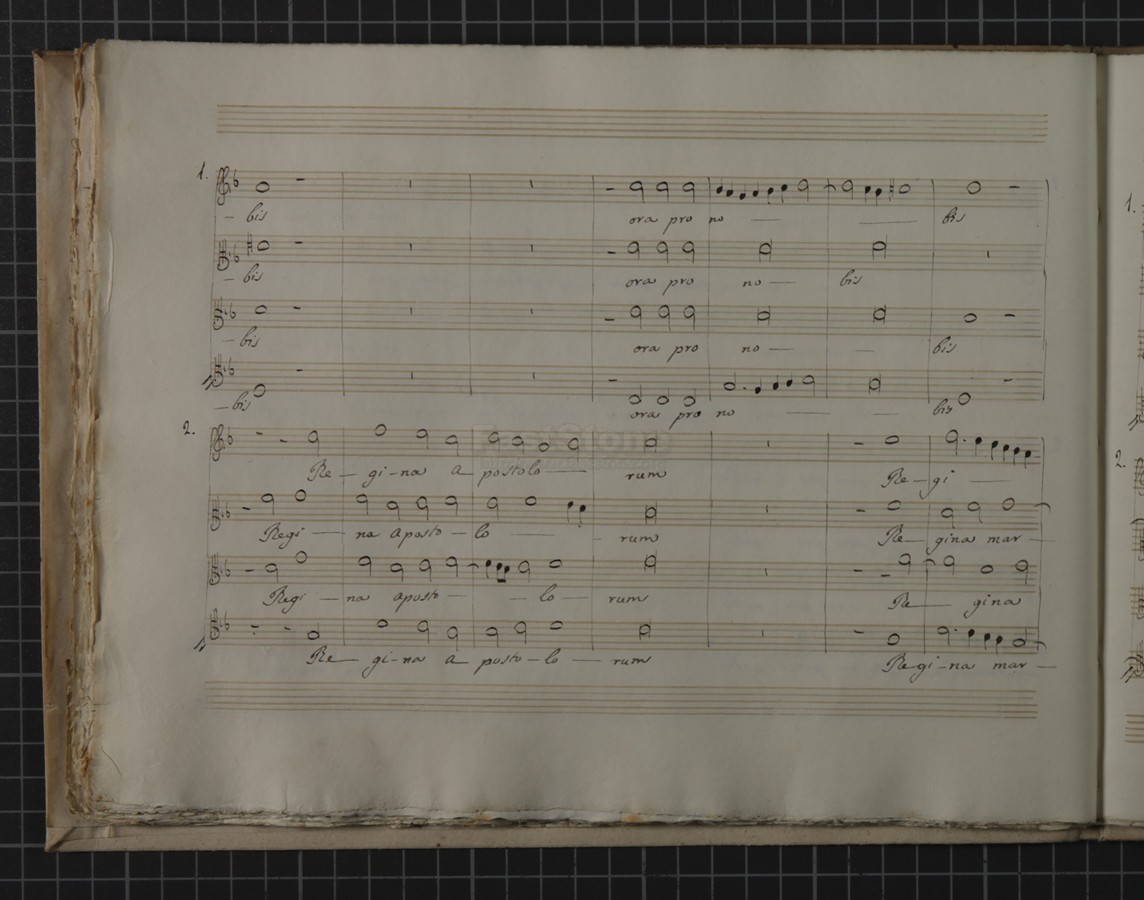 1.
– bis ora pro no — — bis
– bis ora pro no — bis
– bis ora pro no — — bis
– bis ora pro no — — bis
2.
Re – gi – na a postolo — rum Re – gi —
Regi — na aposto – lo — – rum Re – gina mar –
Regi – na aposto – – lo – rum Re — gina
Re – gi – na a posto – lo – rum Regi – na mar –
1.
2.